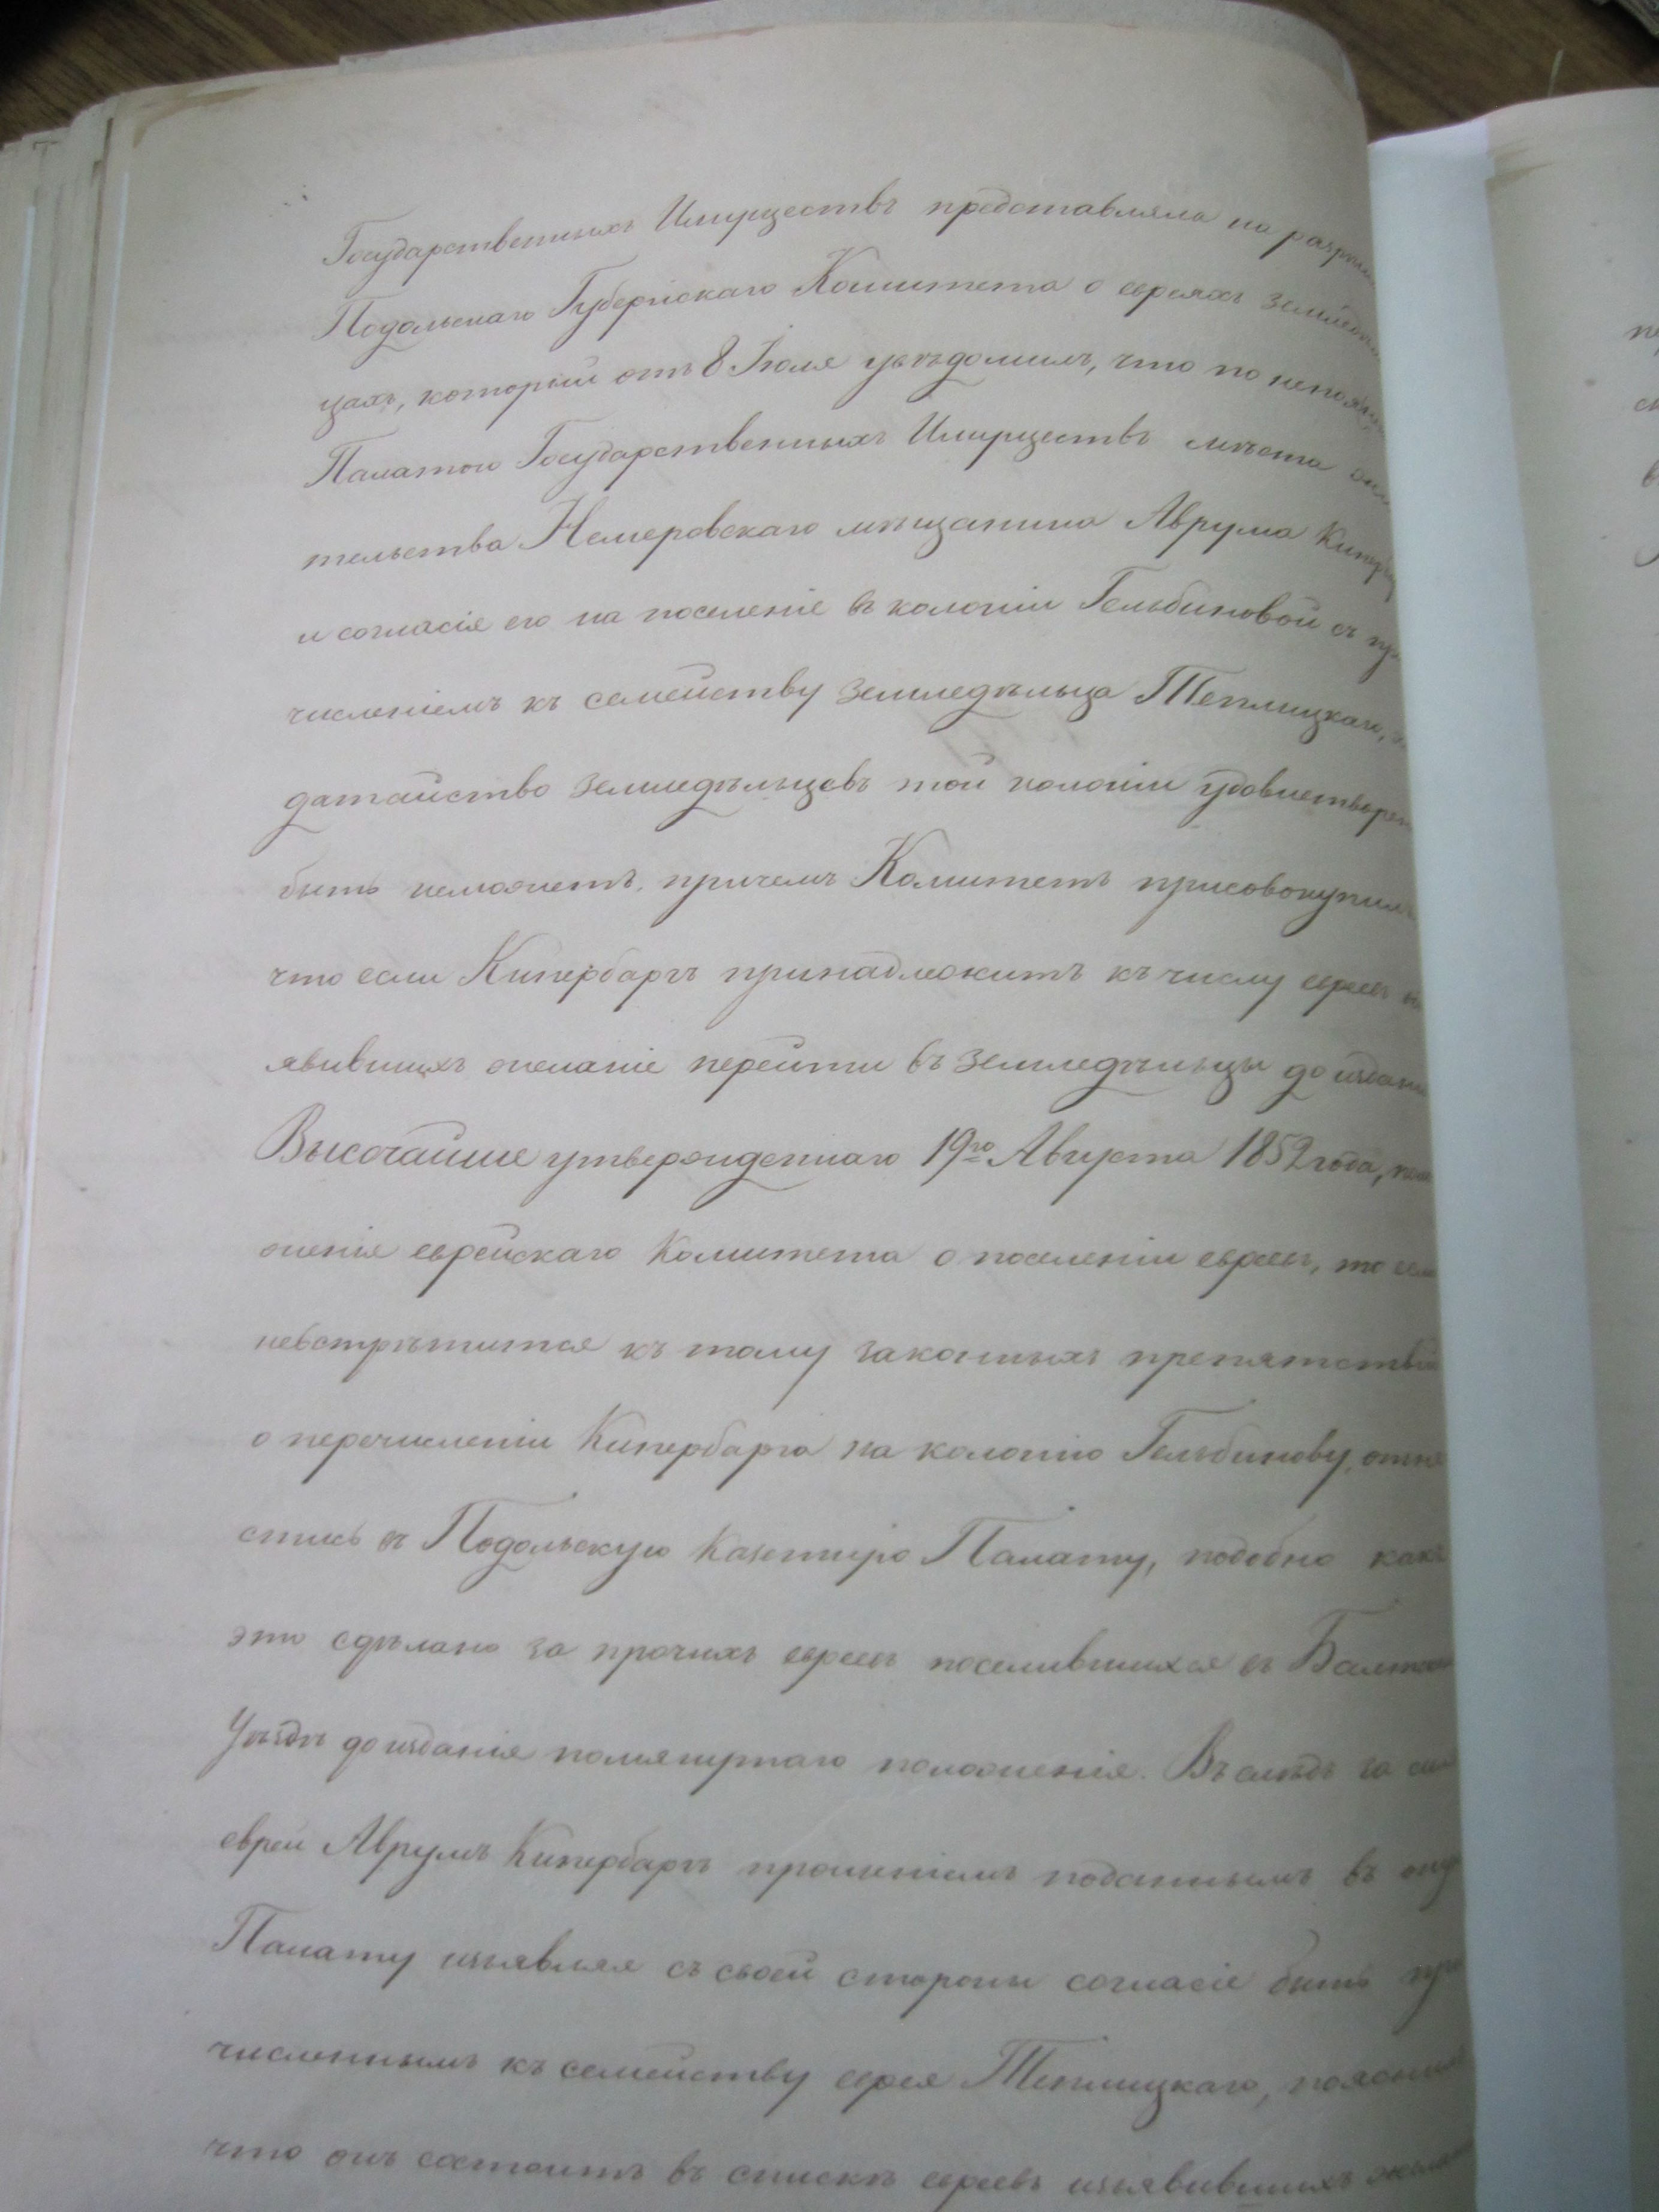 Государственныхъ Имуществъ представляла на разрѣш
Подольскаго Губернскаго Комитета о евреяхъ земледѣль
цахъ, который отъ 8 Іюля увѣдомилъ, что по непоясн
Палатою Государственныхъ Имуществъ мѣста
тельства Немеровскаго мѣщанина Аврума Киперб
и согласія его на поселеніе въ колоніи Гельбиновой съ пр
численіемъ къ семейству земледѣльца Теплицкаго,
датайство земледѣльцевъ той колоніи удовлетворен
быть неможетъ, причемъ Комитетъ присовокупилъ
что если Кипербаргъ принадлежитъ къ числу евреевъ
явившихъ желаніе перейти въ земледѣльцы до издані
Высочайше утвержденнаго 19го Августа 1852 года, поло
женія еврейскаго Комитета о поселеніи евреевъ, то
невстрѣтится къ тому законныхъ препятствій
о перечисленіи Кипербарга на колонію Гельбинову, отне
стись въ Подольскую Казенную Палату, подобно какъ
это сдѣлано за прочихъ евреевъ поселившихся въ Балтск
Уѣздѣ до изданія помянутаго положенія. Въ слѣдъ за
еврей Аврумъ Кипербаргъ прошеніемъ поданнымъ въ
Палату изъявляя съ своей стороны согласіе быть при
численнымъ къ семейству еврея Теплицкаго, пояснилъ
что онъ состоитъ въ спискѣ евреевъ изъявившихъ желан